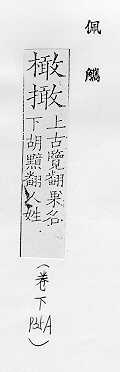 佩觿
橄撖
上古覽翻果名
下胡黯翻人姓
(卷下 P36A)